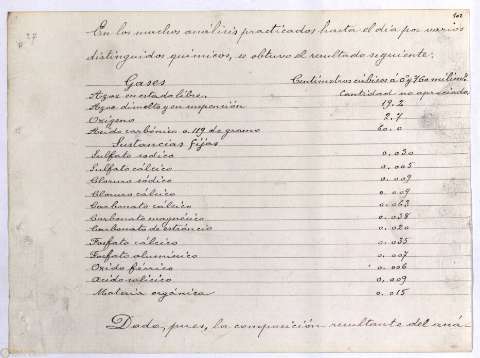 102
En los muchos análisis practicados hasta el día por varios
distinguidos químicos, se obtuvo el resultado siguiente:
Gases Centímetros cúbicos á 0º y 760 milims
Azoe en estado libre. Cantidad no apreciada.
Azoe disuelto y en suspensión 19.2
Oxígeno 2.7
Acido carbónico 0.119 de gramo 60.0
Sustancias fijas
Sulfato sódico 0.030
Sulfato cálcico 0.005
Cloruro sódico 0.009
Cloruro cálcico 0.009
Carbonato cálcico 0.063
Carbonato magnésico 0.038
Carbonato de estroncio 0.020
Fosfato cálcico 0.035
Fosfato alumínico 0.007
Oxido férrico 0.006
Acido salícico 0.009
Materia orgánica 0.015
Dada, pues, la composición resultante del aná-